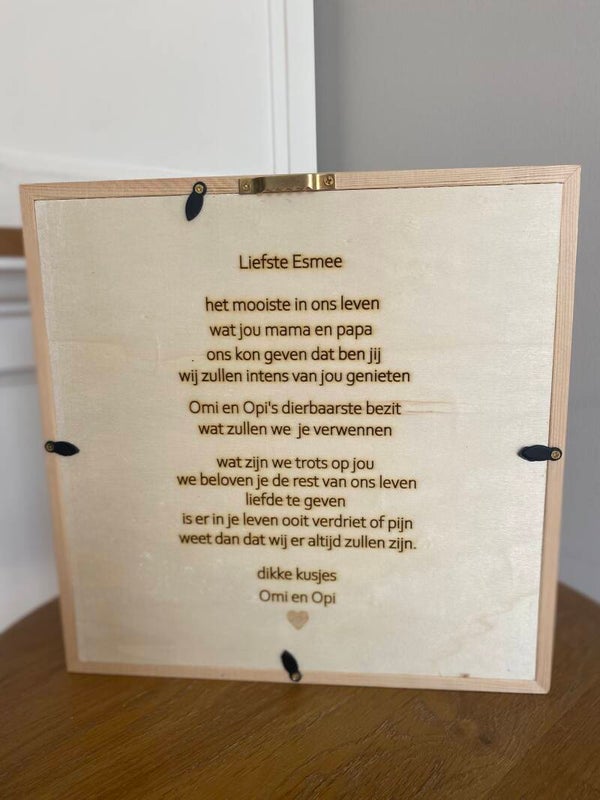 Liefste Esmee
het mooiste in ons leven
wat jou mama en papa
ons kon geven dat ben jij
wij zullen intens van jou genieten
Omi en Opi's dierbaarste bezit
wat zullen we je verwennen
wat zijn we trots op jou
we beloven je de rest van ons leven
liefde te geven
is er in je leven ooit verdriet of pijn
weet dan dat wij er altijd zullen zijn.
dikke kusjes
Omi en Opi